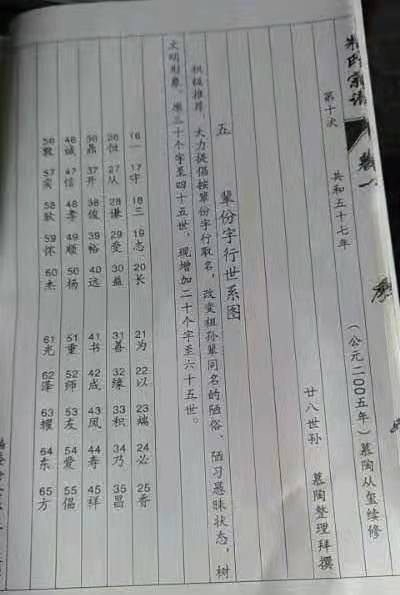 朱氏宗谱 卷一
第十次 共和五十七年 （公元二00五年）慕陶从玺续修
廿八世孙 慕陶整理拜撰
五 辈份字行世系图
积极推荐，大力提倡按辈份字行取名，改变祖孙辈同名的陋俗、陋习愚昧状态，树
文明形象。原三十个字至四十五世，现增加二十个字至六十五世。
16一 17守 18三 19志 20长 21为 22以 23端 24必 25香
26恒 27从 28谦 29爱 30益 31善 32缘 33积 34乃 35昌
36鼎 37开 38俊 39裕 40远 41书 42成 43凤 44寿 45祥
46诚 47信 48孝 49顺 50扬 51重 52师 53友 54爱 55倡
56敦 57实 58耿 59怀 60杰 61光 62泽 63耀 64东 65方